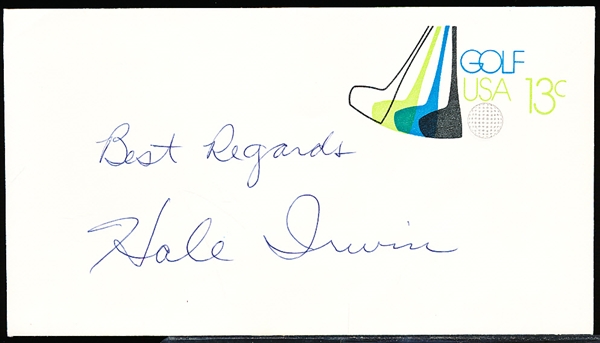 GOLF
USA 13c
Best Regards
Hale Irwin